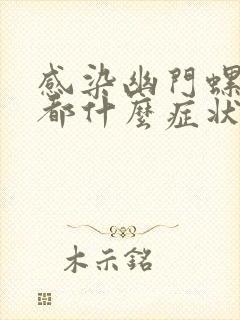 感染幽門螺
都什麼症狀
木示銘